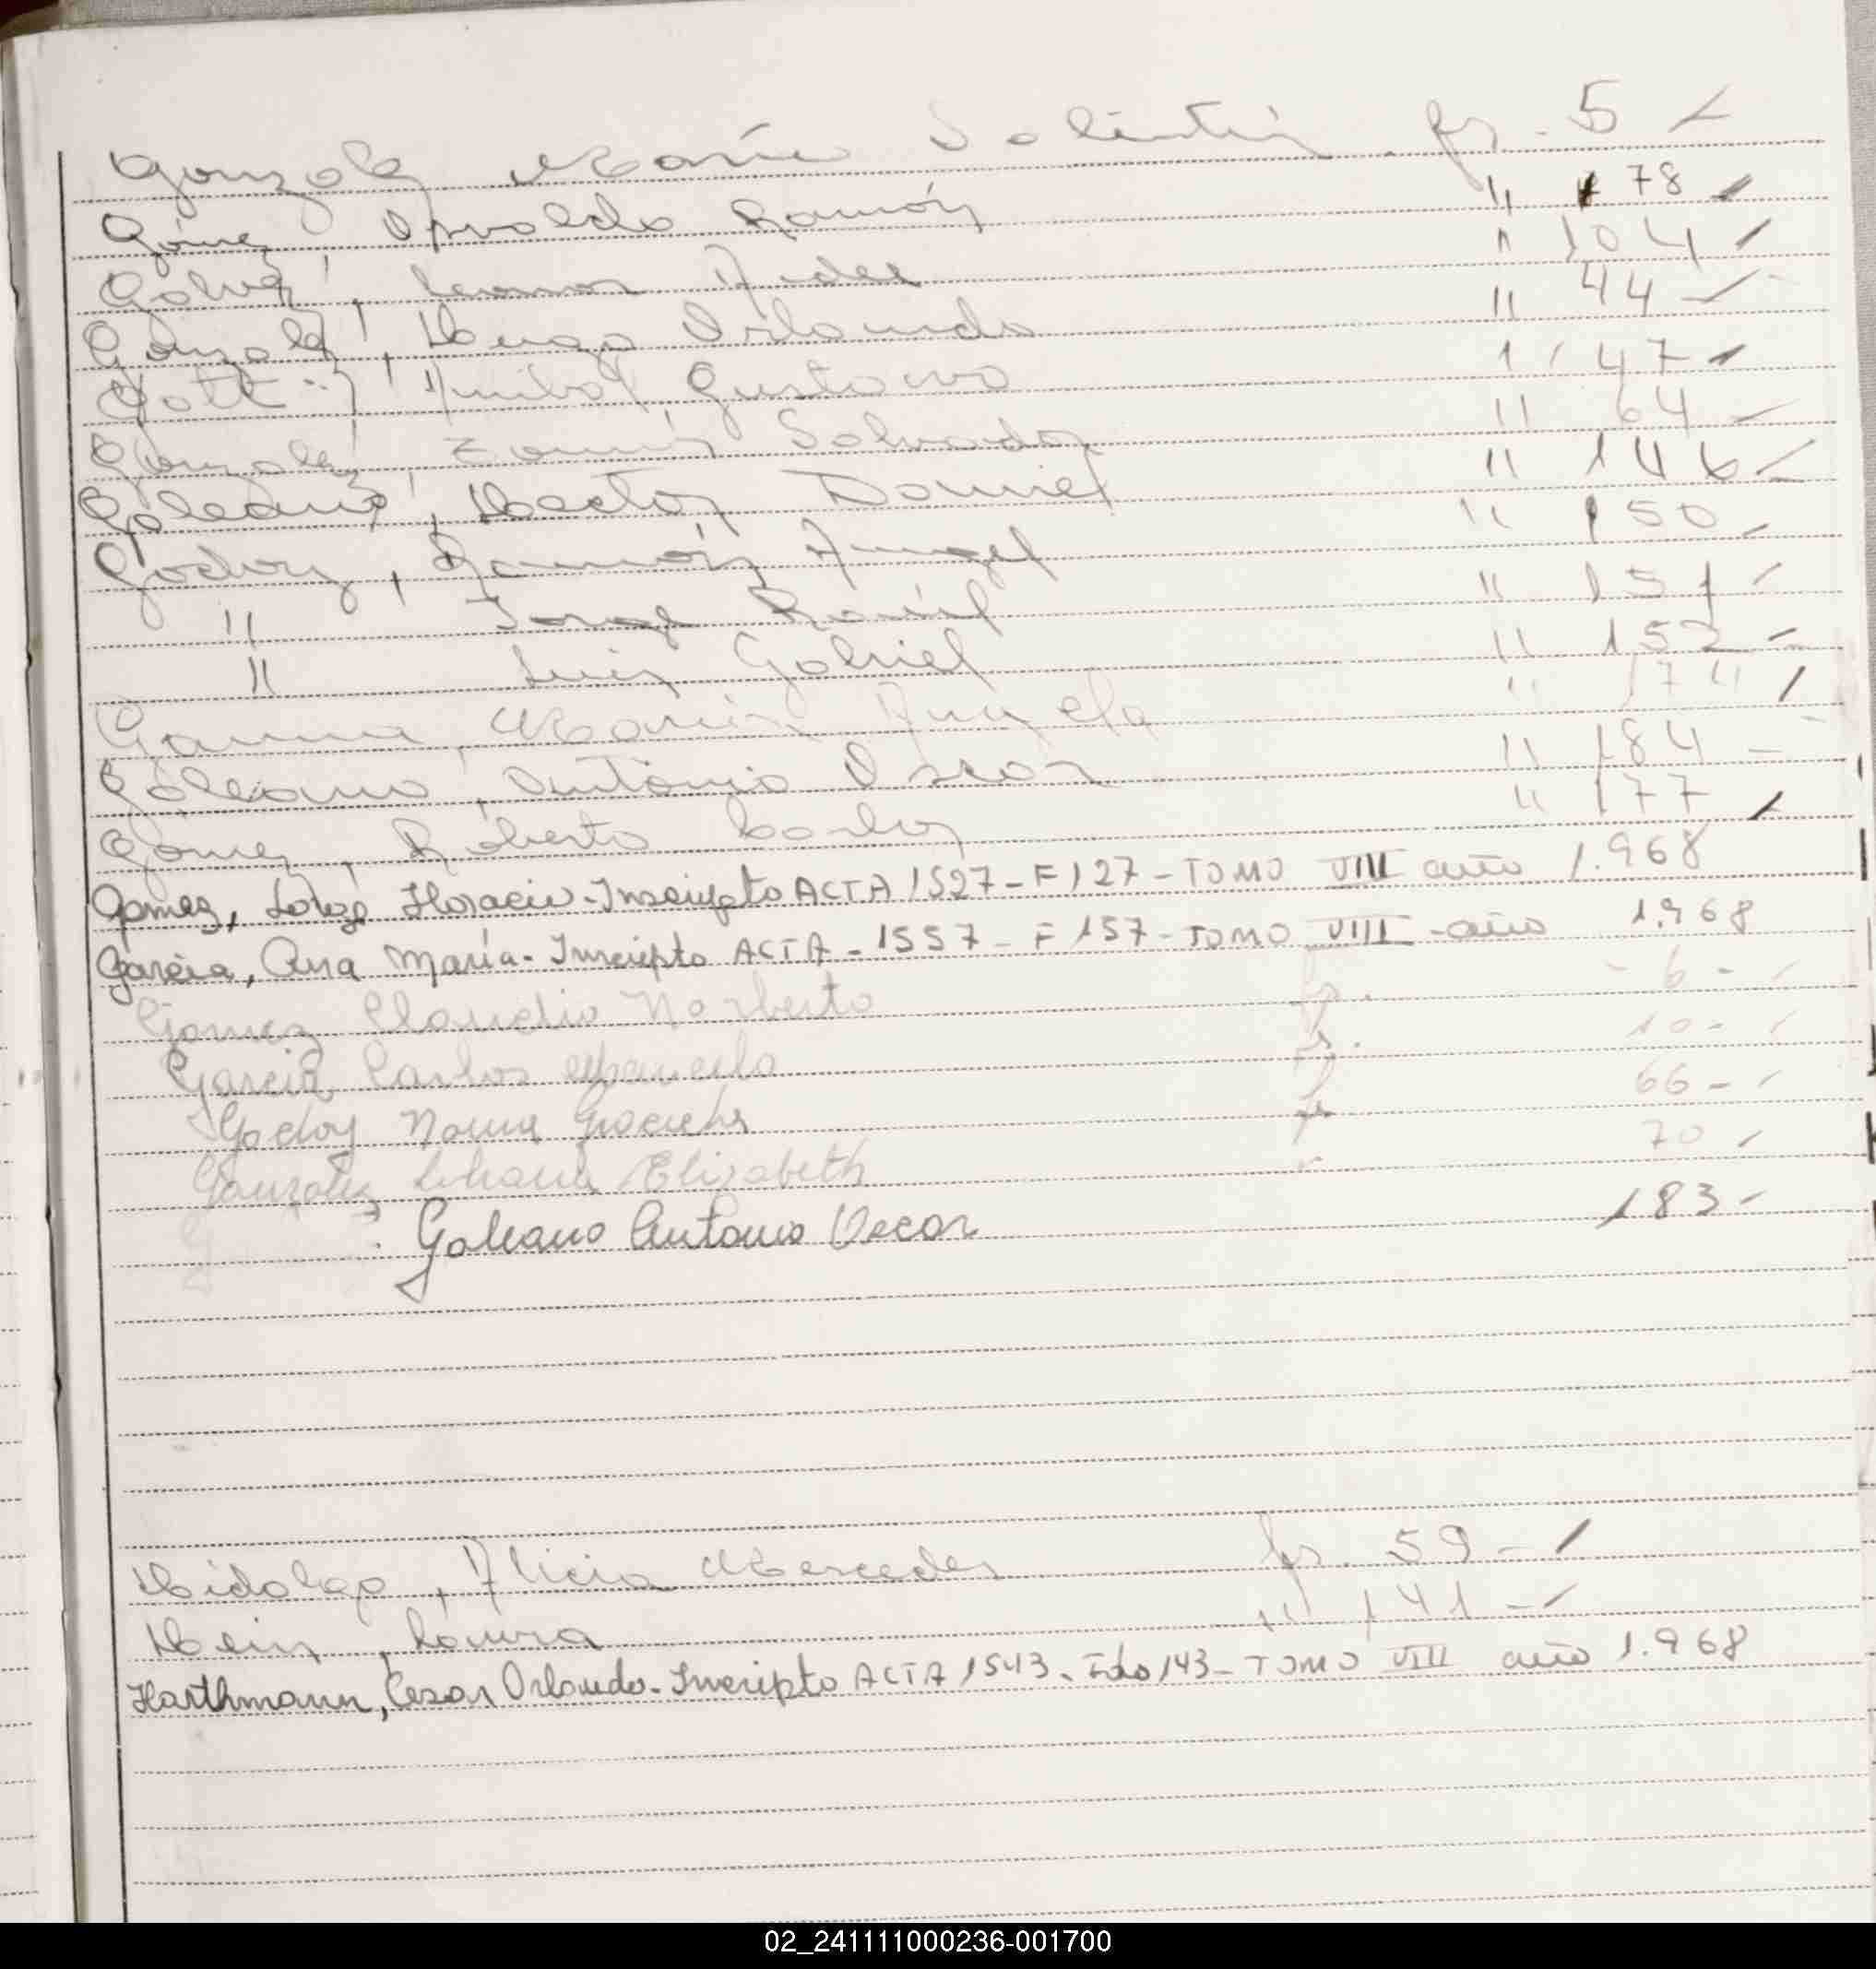 Gonzalez María fs. 5
Gómez, Osvaldo Ramón " 78
Galvez, Leonor Aidee " 104
Gonzalez, Hugo Orlando " 44
Gott, Anibal Gustavo " 47
Gonzalez, Salvador " 64
Galeano, Hector Daniel " 146
Godoy, Ramón Angel " 150
" Jorge Raúl " 151
" Luis Gabriel " 152
María Angela " 174
Galeano, Antonio Oscar " 184
Gómez, Roberto Carlos " 177
Gomez, Horacio - Inscripto ACTA 1527 - F 127 - TOMO VIII año 1.968
García, Ana María - Inscripto ACTA - 1557 - F 157 - TOMO VIII - año 1.968
Gomez Claudio Norberto fs. - 6 -
Garcia Carlos Marcelo fs. 10 -
Godoy Norma Graciela fs 66 -
Gonzalez Liliana Elizabeth " 70
Galeano Antonio Oscar 183 -
Hidalgo, Alicia Mercedes fs. 59 -
Hein, Laura " 141 -
Harthmann, Cesar Orlando - Inscripto ACTA 1543 - Fdo 143 - TOMO VIII año 1.968
02_241111000236-001700